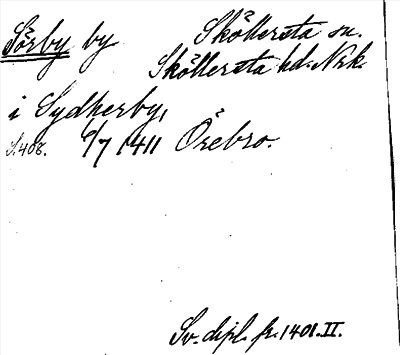 Sörby by Sköllersta sn.
Sköllersta hd. Nrk.
i Sydherby,
S. 408. 6/7 1411 Örebro.
Sv. dipl. fr. 1401. II.